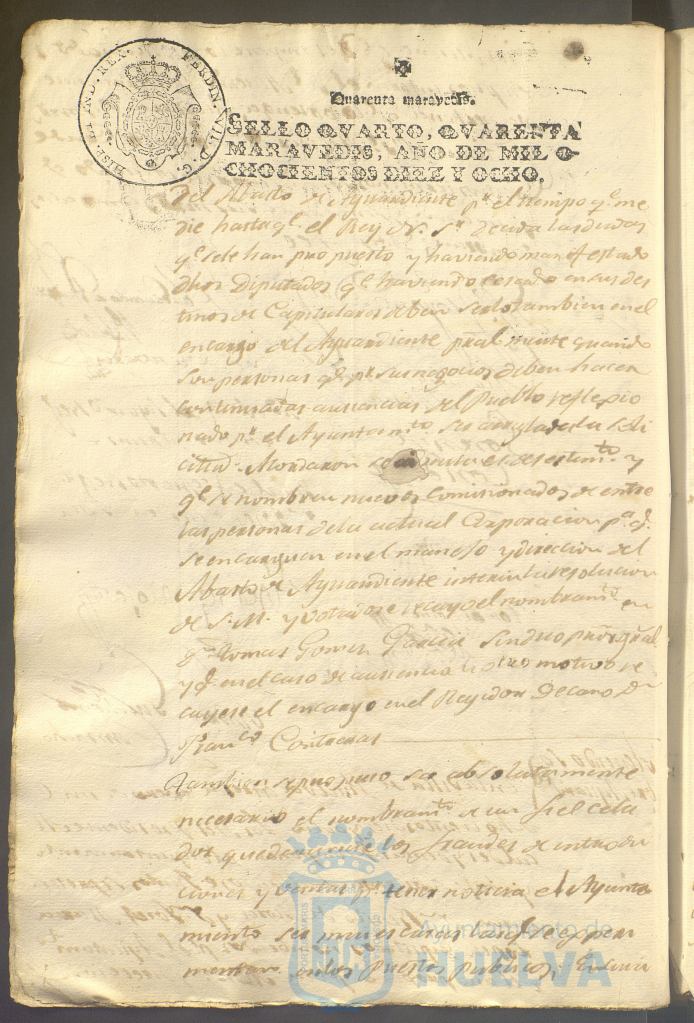 HISP. ET IND. REX. FERDIN. VII. D. G.
Quarenta maravedis.
SELLO QVARTO, QVARENTA
MARAVEDIS, AÑO DE MIL O-
CHOCIENTOS DIEZ Y OCHO.
del Abasto de Aguardiente pr. el tiempo qe. me
die hasta qe. el Rey N. Sr. decida las dudas
qe. se le han propuesto y haviendo manifestado
dhos Diputados qe. haviendo cesado en sus des
tinos de Capitulares deben serlo tambien en el
encargo del Aguardiente pral.mente quando
son personas qe. pr. sus negocios deben hacer
continuadas ausencias del Pueblo reflexio
nado pr. el Ayuntamto. ser arreglada la soli
citud. Acordaron y
qe. se nombren nuevos comisionados de entre
las personas de la actual Corporacion pa. qe.
se encarguen en el manejo y direccion del
Abasto de Aguardiente interin la resolucion
de S. M. y votadose recayo el nombramto. en
Dn. Tomas Gomez Garcia Sindico
y qe. en el caso de ausencia u otro motivo re
cayese el encargo en el Regidor Decano Dn.
Franco. Contreras
Tambien se propuso ser absolutamente
necesario el nombramto. de un fiel cela
dor que los fraudes de introdu
ciones y ventas pr. tener noticia el Ayunta
miento ser muy
mentan en los Puestos publicos,
Ayuntamiento de
HUELVA